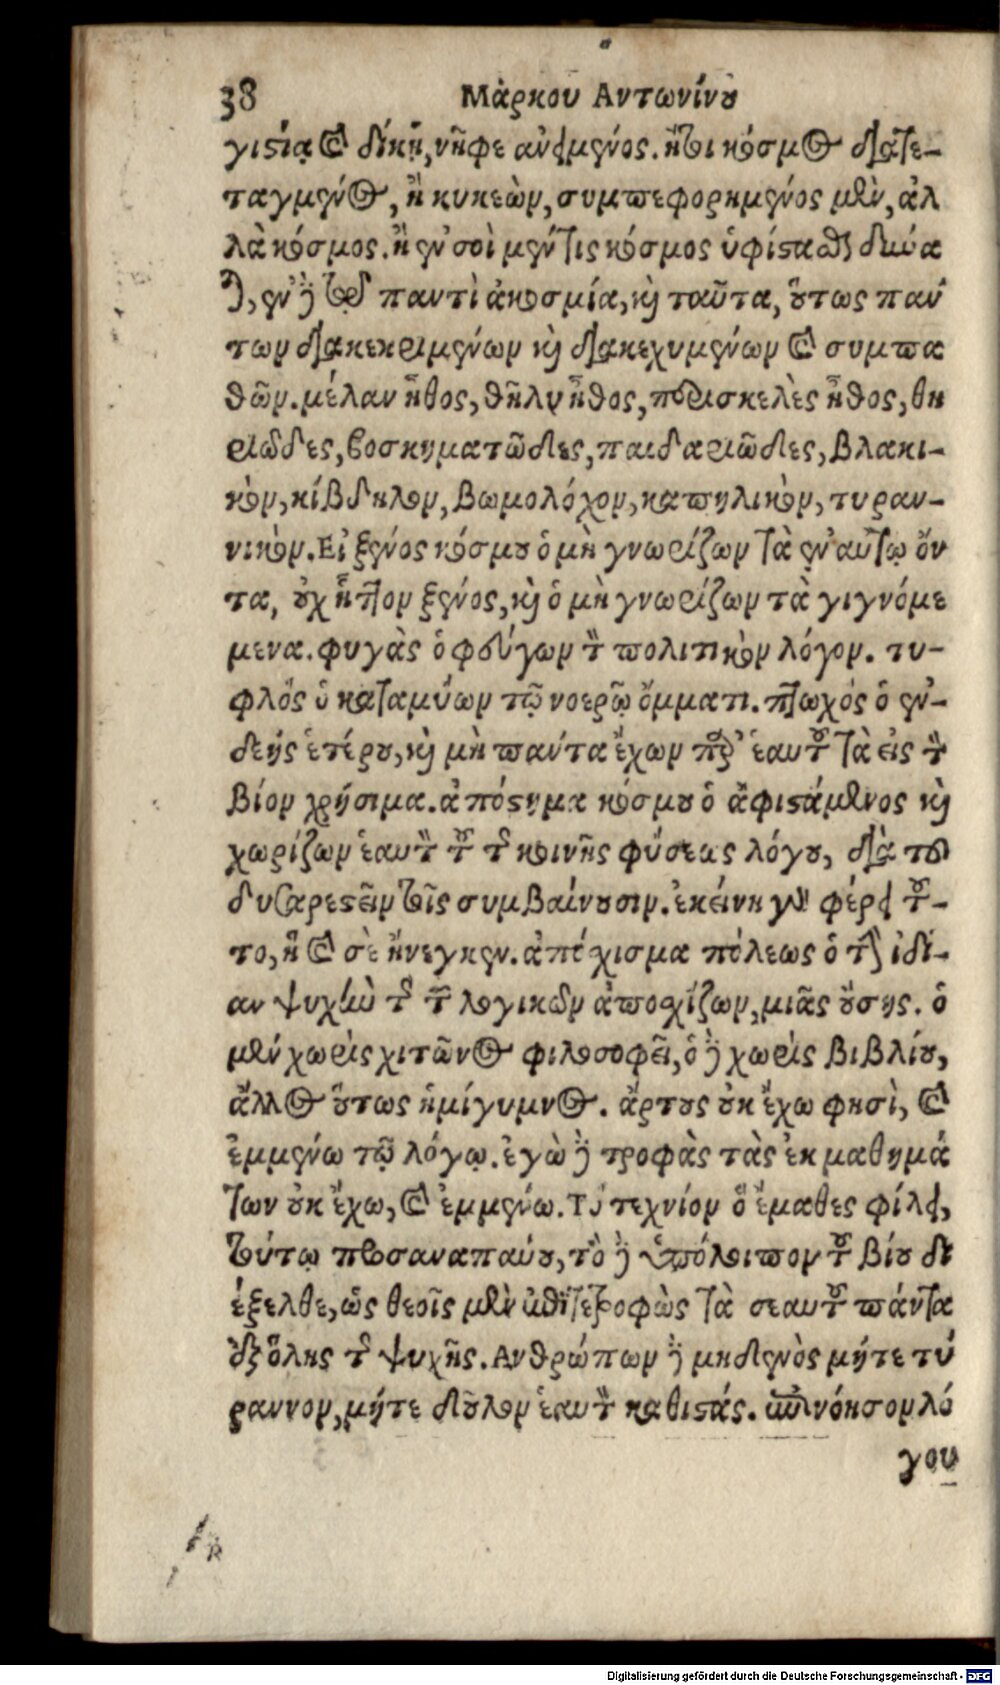 38 Μάρκου Αντωνίνου
γιστίᾳ καὶ δίκῃ, νῆφε ἀνειμένος. ἤτοι κόσμος διατε-
ταγμένος, ἢ κυκεὼν, συμπεφορημένος μὲν, ἀλ
λὰ κόσμος. ἢ ἐν σοὶ μέν τις κόσμος ὑφίστασθαι δύνα
ται, ἐν δὲ τῷ παντὶ ἀκοσμία, καὶ ταῦτα, οὕτως πάν
των διακεκριμένων καὶ διακεχυμένων καὶ συμπα
θῶν. μέλαν ἦθος, θῆλυ ἦθος, περισκελὲς ἦθος, θη
ριῶδες, βοσκηματῶδες, παιδαριῶδες, βλακι-
κὸν, κίβδηλον, βωμολόχον, καπηλικὸν, τυραν-
νικὸν. Εἰ ξένος κόσμου ὁ μὴ γνωρίζων τὰ ἐν αὐτῷ ὄν
τα, οὐχ ἧττον ξένος, καὶ ὁ μὴ γνωρίζων τὰ γιγνόμε
μενα. φυγὰς ὁ φεύγων τὸν πολιτικὸν λόγον. τυ-
φλὸς ὁ καταμύων τῷ νοερῷ ὄμματι. πτωχός ὁ ἐν-
δεής ἑτέρου, καὶ μὴ πάντα ἔχων παρ’ ἑαυτοῦ τὰ εἰς τὸν
βίον χρήσιμα. ἀπόστημα κόσμου ὁ ἀφιστάμενος καὶ
χωρίζων ἑαυτὸν τοῦ τῆς κοινῆς φύσεως λόγου, διὰ τοῦ
δυσαρεστεῖν τοῖς συμβαίνουσιν. ἐκείνη γὰρ φέρει τοῦ-
το, ἣ καὶ σὲ ἤνεγκεν. ἀπόσχισμα πόλεως ὁ τὴν ἰδί-
αν ψυχὴν τῆς τῶν λογικῶν ἀποσχίζων, μιᾶς οὔσης. ὁ
μὲν χωρὶς χιτῶνος φιλοσοφεῖ, ὁ δὲ χωρὶς βιβλίου,
ἄλλος οὕτως ἡμίγυμνος. ἄρτους οὐκ ἔχω φησὶ, καὶ
ἐμμένω τῷ λόγῳ. ἐγὼ δὲ τροφὰς τὰς ἐκ μαθημά
των οὐκ ἔχω, καὶ ἐμμένω. Τὸ τεχνίον ὃ ἔμαθες φίλει,
τούτῳ προσαναπαύου, τὸ δὲ ὑπόλοιπον τοῦ βίου δι
έξελθε, ὡς θεοῖς μὲν ἐπιτετροφὼς τὰ σεαυτοῦ πάντα
ἐξ ὅλης τῆς ψυχῆς. Ανθρώπων δὲ μηδενὸς μήτε τύ
ραννον, μήτε δοῦλον ἑαυτὸν καθιστάς. ἐπινόησον λό
γου
Digitalisierung gefördert durch die Deutsche Forschungsgemeinschaft - DFG